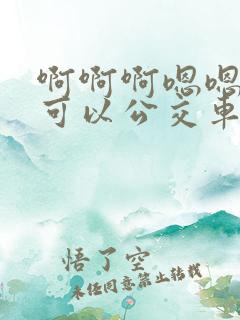 啊啊啊嗯嗯
可以公交车
悟了空
未经同意禁止转载